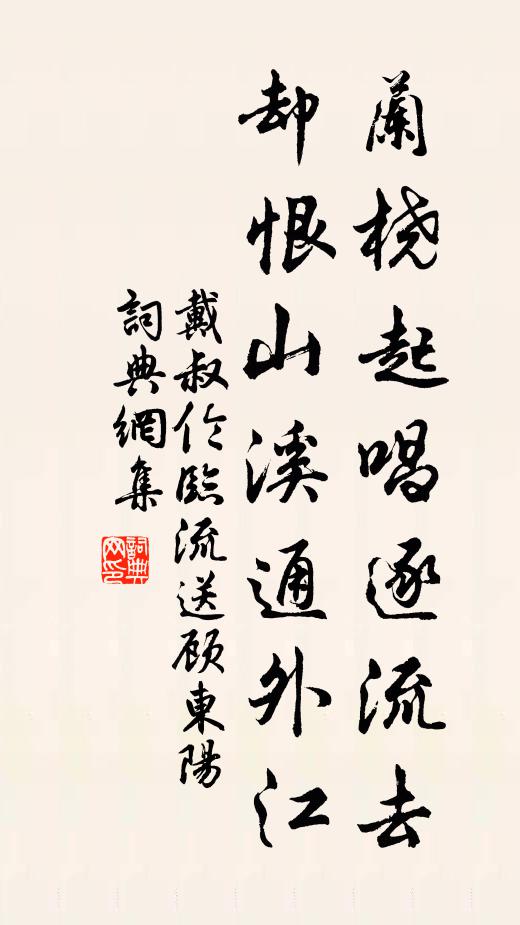 蘭橈起唱逐流去
却恨山溪通外江
戴叔伦臨流送顾東陽
詞典網集
詞典网印